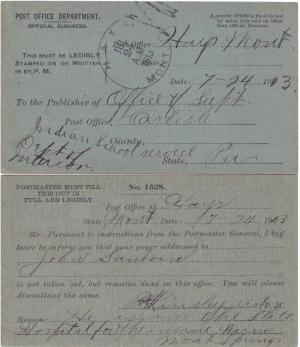 POST OFFICE DEPARTMENT.
OFFICIAL BUSINESS.
A penalty of $300 is fixed by law
for using this card on other
than Official Business.
THIS MUST BE LEGIBLY
STAMPED OR OR WRITTEN
IN BY, P. M.
Post Office: Hays Mont
HAYS
MONT
Date: 7-24 1913
To the Publisher of Office of Supt.
Post Office, Carlisle
Indian School service County,
Dept of
Interior
State, Pa
POSTMASTER MUST FILL
THIS OUT IN
FULL AND LEGIBLY.
No. 1528.
Post Office at Hays
State Mont Date: 7/24 1913
Sir: Pursuant to instructions from the Postmaster General, I beg
leave to inform you that your paper addressed to
John Sanborn
is not taken out, but remains dead in this office. You will please
discontinue the same.
P. M.
Reason He is in one the State
Hospital for the insane Warm
Mont Springs